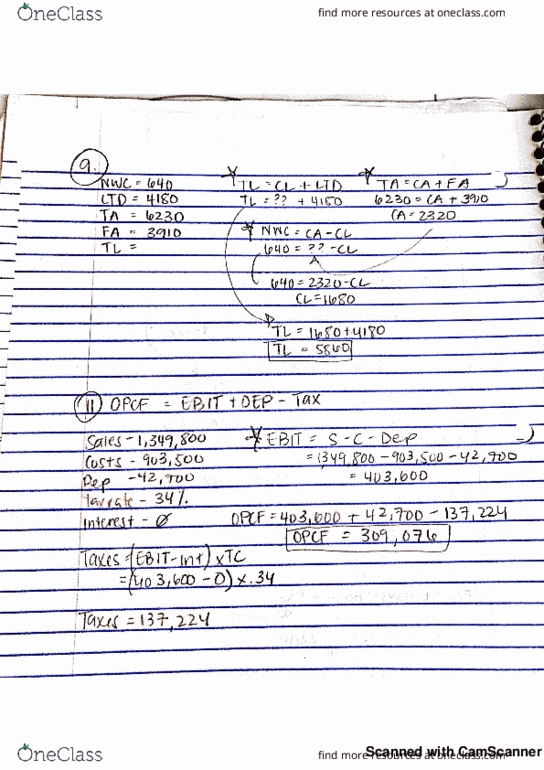 OneClass
find more resources at oneclass.com
9.
NWC = 640
LTD = 4180
TA = 6230
FA = 3910
TL =
TL = CL + LTD
TL = ?? + 4180
NWC = CA - CL
640 = ?? - CL
640 = 2320 - CL
CL = 1680
TL = 1680 + 4180
TL = 5860
TA = CA + FA
6230 = CA + 3910
CA = 2320
11 OPCF = EBIT + DEP - Tax
Sales - 1,349,800
Costs - 903,500
Dep - 42,700
Tax rate - 34%
Interest - 0
Taxes = (EBIT - Int) x TC
= (403,600 - 0) x .34
Taxes = 137,224
EBIT = S - C - Dep
= 1349,800 - 903,500 - 42,700
= 403,600
OPCF = 403,600 + 42,700 - 137,224
OPCF = 309,076
OneClass
find more resources at oneclass.com
Scanned with CamScanner